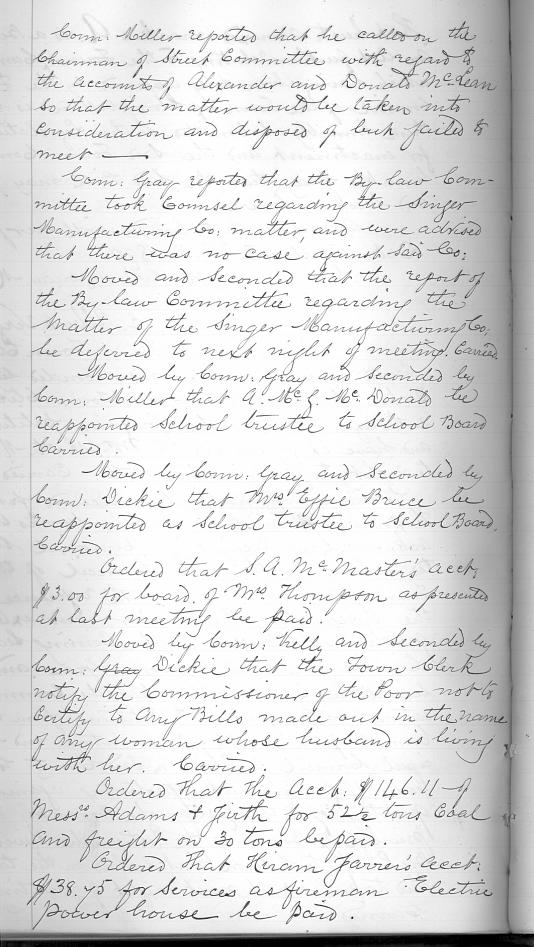 Conn: Miller reported that he called on the
Chairman of Street Committee with regard to
the accounts of Alexander and Donald McLean
so that the matter would be taken into
consideration and disposed of but failed to
meet —
Conn: Gray reported that the By-law Com-
mittee took Counsel regarding the Singer
Manufacturing Co: matter, and were advised
that there was no case against said Co:
Moved and seconded that the report of
the By-law Committee regarding the
matter of the Singer Manufacturing Co:
be deferred to next night of meeting. Carried.
Moved by Conn: Gray and seconded by
Conn: Miller that A. McDonald be
reappointed School trustee to School Board
Carried.
Moved by Conn: Gray and Seconded by
Conn: Dickie that Mrs Effie Bruce be
reappointed as School trustee to School Board.
Carried.
Ordered that S. A. McMaster's acct;
$3.00 for board of Mrs Thompson as presented
at last meeting be paid.
Moved by Conn: Kelly and Seconded by
Conn: Gray Dickie that the Town Clerk
notify the Commissioner of the Poor not to
Certify to any Bills made out in the name
of any woman whose husband is living
with her. Carried.
Ordered that the Acct: $146.11 of
Messrs Adams & Firth for 52½ tons Coal
and freight on 30 tons be paid.
Ordered that Hiram acct:
$38.75 for Services as fireman Electric
power house be paid.